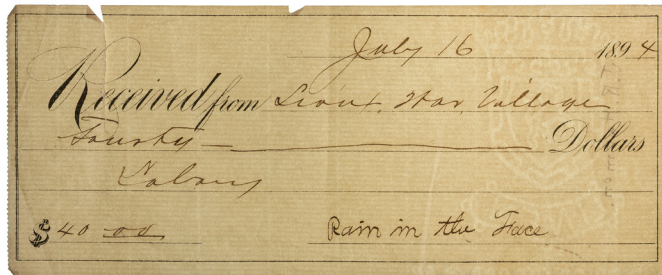 July 16 1894
Received from Sioux War Village
Fourty Dollars
Salary
$ 40 00
Rain in the Face